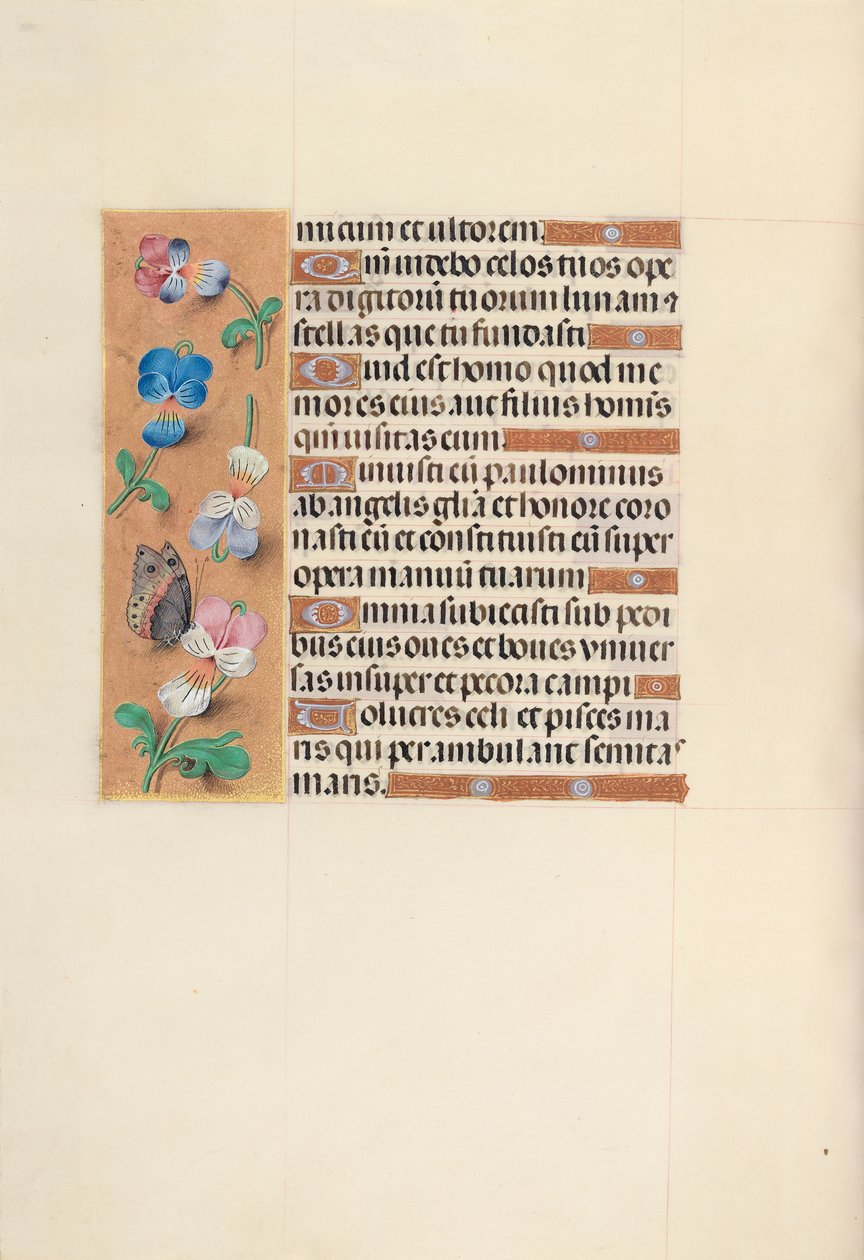 micum et ultorem.
Qm̄ uidebo celos tuos ope
ra digitorū tuorum lunam ⁊
stellas que tu fundasti
Quid est homo quod me
mores eius aut filius homīs
qm̄ uisitas eum.
Minuisti eū paulominus
ab angelis gl̄ia et honore coro
nasti eū et cōnstituisti eū super
opera manuū tuarum
Omnia subiecisti sub pedi
bus eius oues et boues vniuer
sas insuper et pecora campi
Uolucres celi et pisces ma
ris qui perambulant semitas
maris.